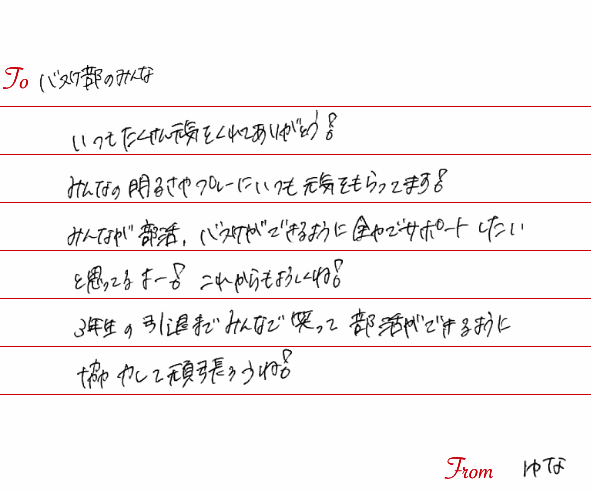 To バスケ部のみんな
いつもたくさん元気をくれてありがとう!
みんなの明るさやプレーにいつも元気をもらってます!
みんなが部活、バスケができるように全力でサポートしたい
と思ってるよー! これからもよろしくね!
3年生の引退までみんなで笑って部活ができるように
協力して頑張ろうね!
From ゆな